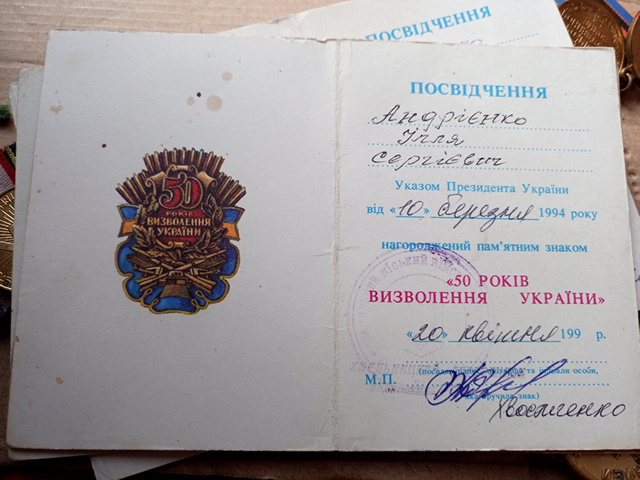 ПОСВІДЧЕННЯ
50
РОКІВ
ВИЗВОЛЕННЯ
УКРАЇНИ
ПОСВІДЧЕННЯ
Андрієнко
Ілля
Сергієвич
Указом Президента України
від «10» березня 1994 року
нагороджений пам'ятним знаком
«50 РОКІВ
ВИЗВОЛЕННЯ УКРАЇНИ»
«20» квітня 199 р.
та ініціали особи,
М.П.
яка вручила знак)